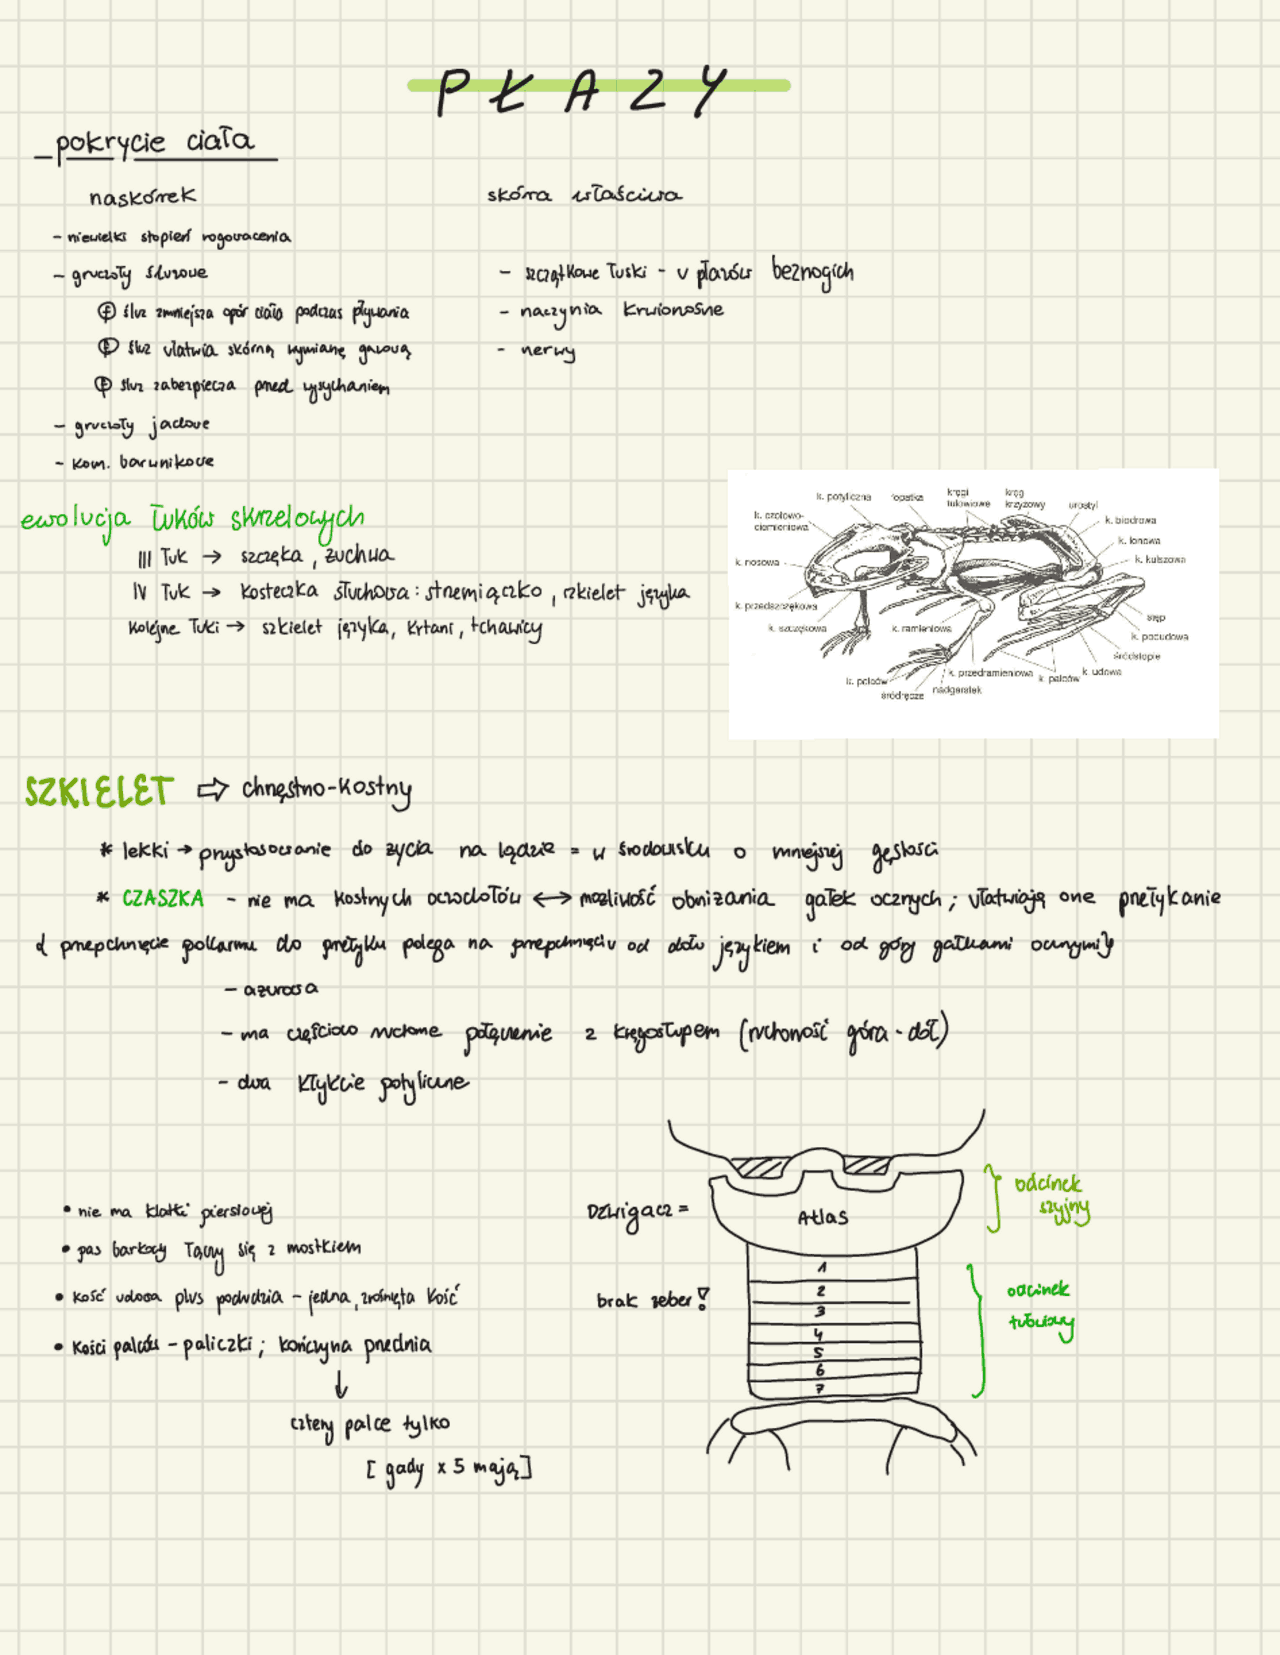 PŁAZY
pokrycie ciała
naskórek
- niewielki stopień rogowacenia
- gruczoły śluzowe
Ⓕ śluz zmniejsza opór ciała podczas pływania
Ⓕ śluz ułatwia skórną wymianę gazową
Ⓕ śluz zabezpiecza przed wysychaniem
- gruczoły jadowe
- kom. barwnikowe
skóra właściwa
- szczątkowe łuski - u płazów beznogich
- naczynia krwionośne
- nerwy
ewolucja łuków skrzelowych
III łuk → szczęka, żuchwa
IV łuk → kosteczka słuchowa: strzemiączko, szkielet języka
kolejne łuki → szkielet języka, krtani, tchawicy
k. potyliczna
łopatka
kręgi tułowiowe
kręg krzyżowy
urostyl
k. czołowo-ciemieniowa
k. biodrowa
k. łonowa
k. kulszowa
k. nosowa
k. przedszczękowa
k. szczękowa
k. ramieniowa
stęp
k. podudowa
śródstopie
k. udowa
k. palców
k. przedramieniowa
k. palców
śródręcze
nadgarstek
SZKIELET ⇨ chrzęstno-kostny
* lekki → przystosowanie do życia na lądzie = w środowisku o mniejszej gęstości
* CZASZKA - nie ma kostnych oczodołów ↔ możliwość obniżania gałek ocznych; ułatwiają one przełykanie
{ przepchnięcie pokarmu do przełyku polega na przepchnięciu od dołu językiem i od góry gałkami ocznymi }
- ażurowa
- ma częściowo ruchome połączenie z kręgosłupem (ruchomość góra - dół)
- dwa kłykcie potyliczne
• nie ma klatki piersiowej
• pas barkowy łączy się z mostkiem
• kość udowa plus podudzia - jedna, zrośnięta kość
• kości palców - paliczki; kończyna przednia
↓
cztery palce tylko
[gady x 5 mają]
Dźwigacz =
Atlas
odcinek szyjny
brak żeber!
1
2
3
4
5
6
7
odcinek tułowiowy